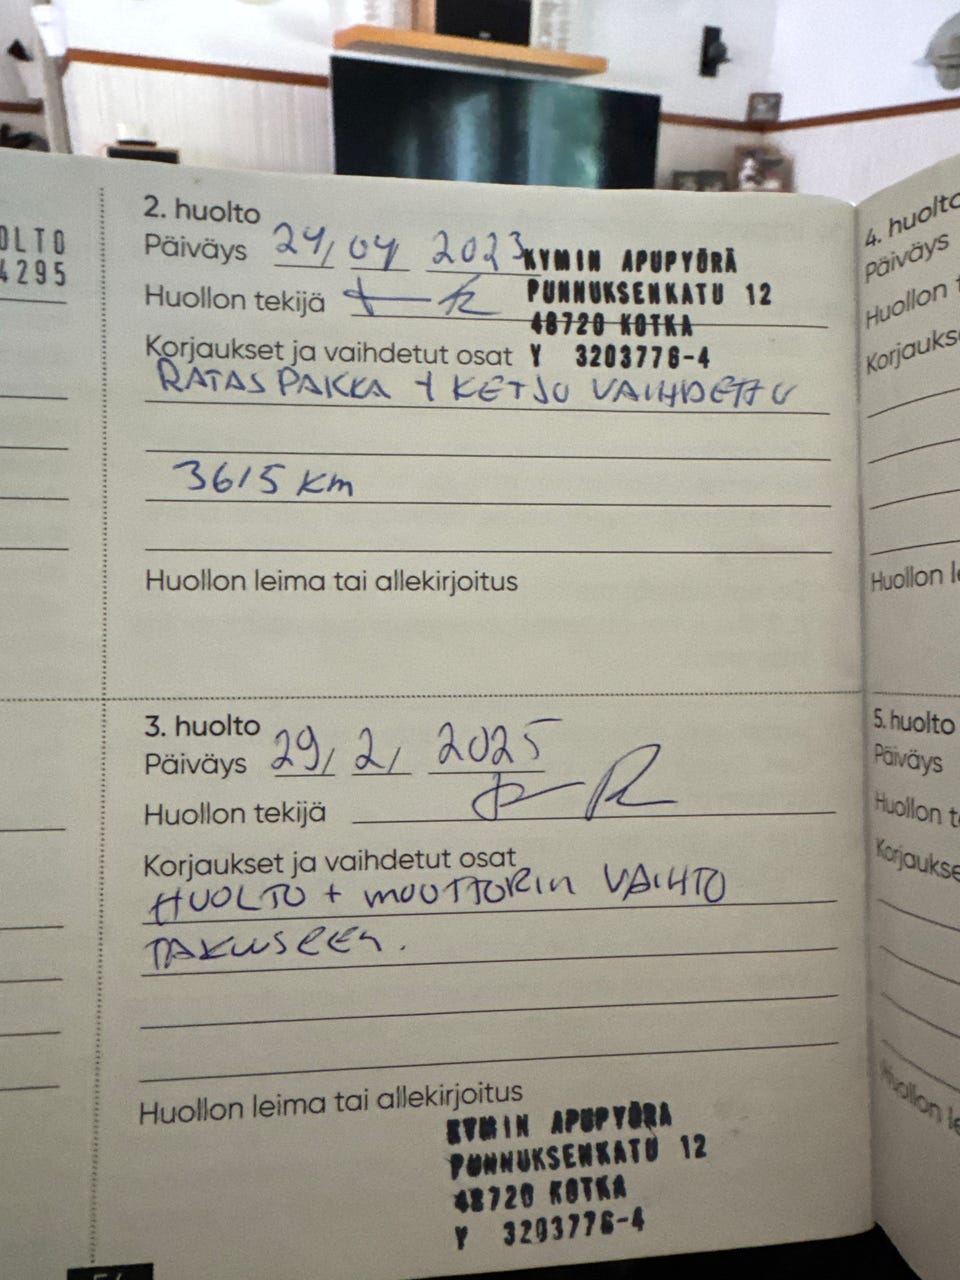 OLTO
4295
2. huolto
Päiväys 24/ 04 2023
KYMIN APUPYÖRÄ
PUNNUKSENKATU 12
48720 KOTKA
Y 3203776-4
Huollon tekijä
Korjaukset ja vaihdetut osat
RATASPAKKA + KETJU VAIHDETTU
3615 km
Huollon leima tai allekirjoitus
3. huolto
Päiväys 29/ 2/ 2025
Huollon tekijä
Korjaukset ja vaihdetut osat
HUOLTO + MOOTTORIN VAIHTO
TAKUUSEEN.
Huollon leima tai allekirjoitus
KYMIN APUPYÖRÄ
PUNNUKSENKATU 12
48720 KOTKA
Y 3203776-4
4. huolto
Päiväys
Huollon t
Korjaukse
Huollon le
5. huolto
Päiväys
Huollon te
Korjaukse
Huollon le